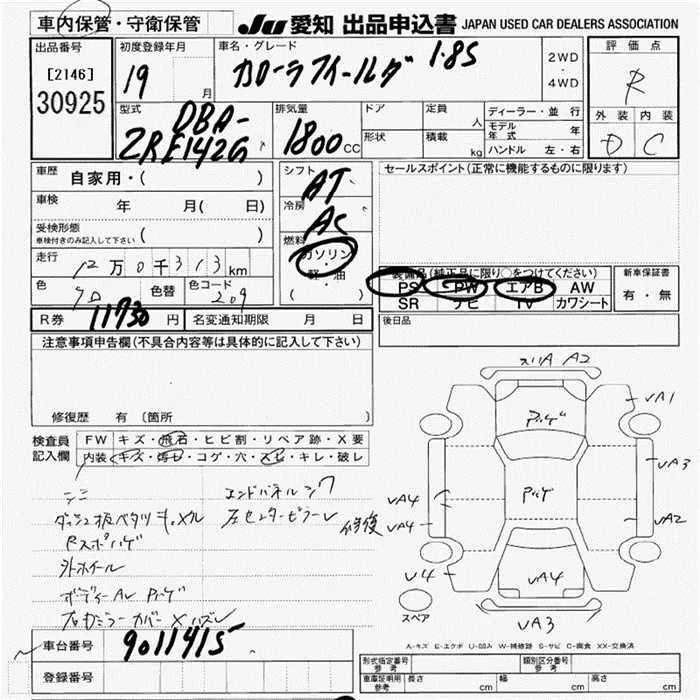 車内保管・守衛保管
JU 愛知 出品申込書 JAPAN USED CAR DEALERS ASSOCIATION
出品番号
[2146]
30925
初度登録年月
19 月
車名・グレード
カローラフィールダ 1.8S
2WD
・
4WD
評価点
R
外装 内装
D C
型式
DBA-
ZRE142G
排気量
1800 cc
ドア
形状
定員 人
積載 kg
ディーラー・並行
モデル年式 年
ハンドル 左・右
車歴 自家用・( )
車検 年 月( 日)
受検形態
車検付きのみ記入して下さい ( )
走行 12万0千313km
色 色替 色コード 209
シフト AT
冷房 AC
燃料
ガソリン
・
軽・油
( )
セールスポイント(正常に機能するものに限ります)
装備品(純正品に限り○をつけてください)
PS PW エアB AW
SR ナビ TV カワシート
新車保証書
有・無
R券 11730円 名変通知期限 月 日
後日品
注意事項申告欄(不具合内容等は具体的に記入して下さい)
修復歴 有 〔箇所
検査員
記入欄
FW キズ・飛石・ヒビ割・リペア跡・X要
内装 キズ・汚レ・コゲ・穴・スレ・キレ・破レ
エンドパネルシワ
ダッシュ板ベタツキ、メクレ
左センターピラーレ
修復
Rスポハゲ
外ホイール
右ミラーカバーXハズレ
スリA A2
VA1
ハゲ
VA3
VA4
VA4
VA2
V4
VA4
VA3
スペア
A-キズ E-エクボ U-凹み W-補修跡 S-サビ C-腐食 XX-交換済
車台番号 9011415
登録番号
形式指定番号
参考
類別区分番号
参考
車庫証明用
参考
長さ cm 幅 cm 高さ cm